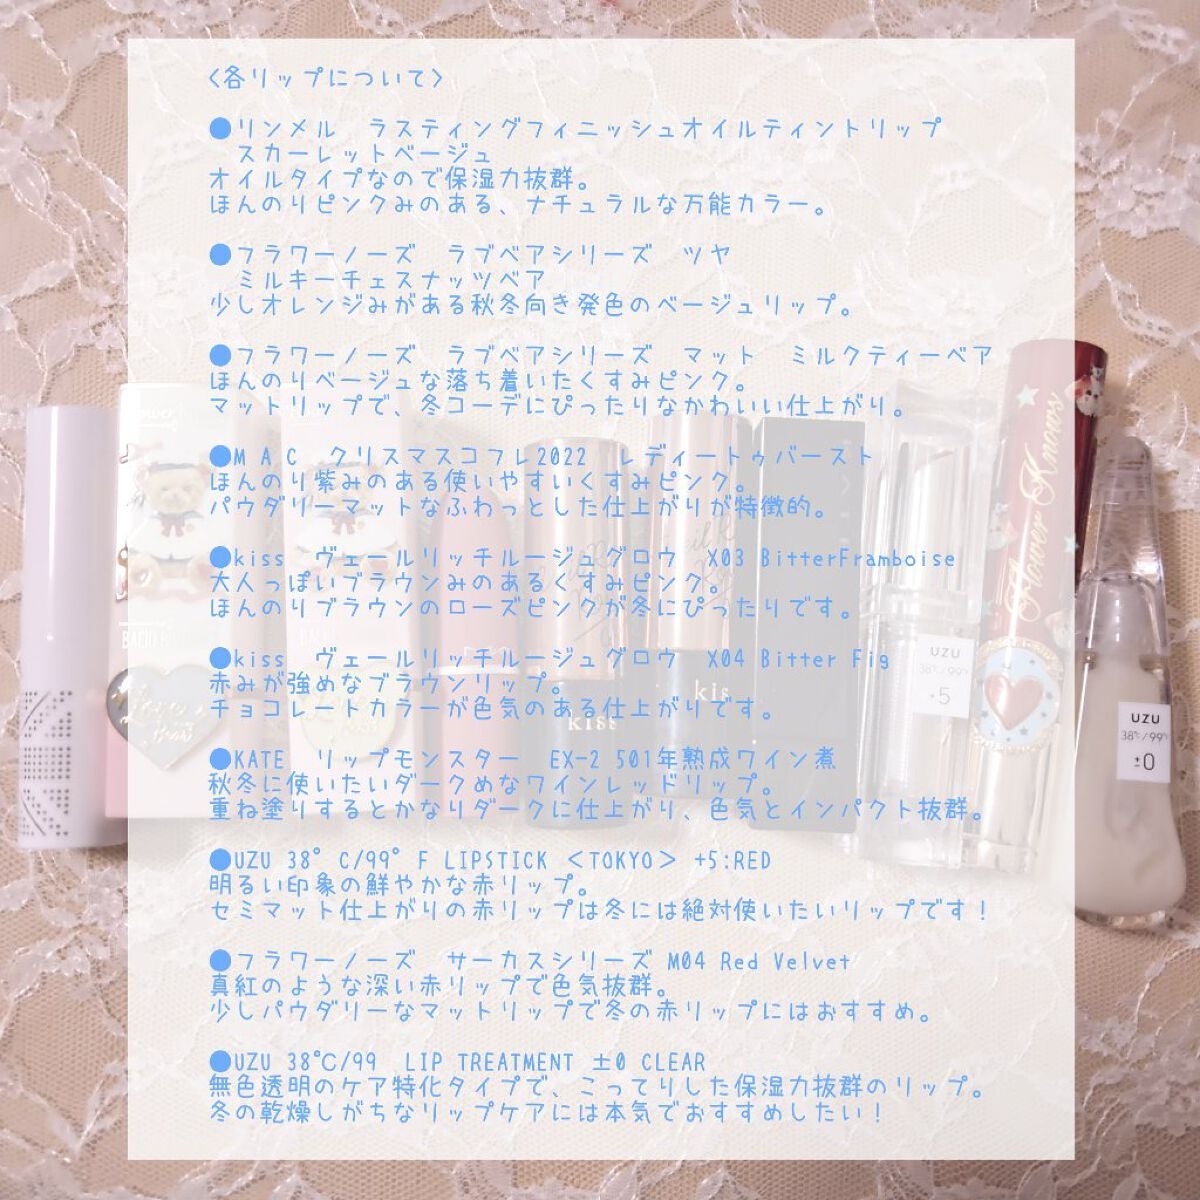 <各リップについて>
●リンメル　ラスティングフィニッシュオイルティントリップ
スカーレットベージュ
オイルタイプなので保湿力抜群。
ほんのりピンクみのある、ナチュラルな万能カラー。
●フラワーノーズ　ラブベアシリーズ　ツヤ
ミルキーチェスナッツベア
少しオレンジみがある秋冬向き発色のベージュリップ。
●フラワーノーズ　ラブベアシリーズ　マット　ミルクティーベア
ほんのりベージュな落ち着いたくすみピンク。
マットリップで、冬コーデにぴったりなかわいい仕上がり。
●MAC　クリスマスコフレ2022　レディートゥバースト
ほんのり紫みのある使いやすいくすみピンク。
パウダリーマットなふわっとした仕上がりが特徴的。
●kiss　ヴェールリッチルージュグロウ　X03 BitterFramboise
大人っぽいブラウンみのあるくすみピンク。
ほんのりブラウンのローズピンクが冬にぴったりです。
●kiss　ヴェールリッチルージュグロウ　X04 Bitter Fig
赤みが強めなブラウンリップ。
チョコレートカラーが色気のある仕上がりです。
●KATE　リップモンスター　EX-2 501年熟成ワイン煮
秋冬に使いたいダークめなワインレッドリップ。
重ね塗りするとかなりダークに仕上がり、色気とインパクト抜群。
●UZU 38°C/99°F LIPSTICK ＜TOKYO＞ +5:RED
明るい印象の鮮やかな赤リップ。
セミマット仕上がりの赤リップは冬には絶対使いたいリップです！
●フラワーノーズ　サーカスシリーズ M04 Red Velvet
真紅のような深い赤リップで色気抜群。
少しパウダリーなマットリップで冬の赤リップにはおすすめ。
●UZU 38℃/99　LIP TREATMENT ±0 CLEAR
無色透明のケア特化タイプで、こってりした保湿力抜群のリップ。
冬の乾燥しがちなリップケアには本気でおすすめしたい！
kiss
kis
UZU
+5
Flower Knows
UZU
±0